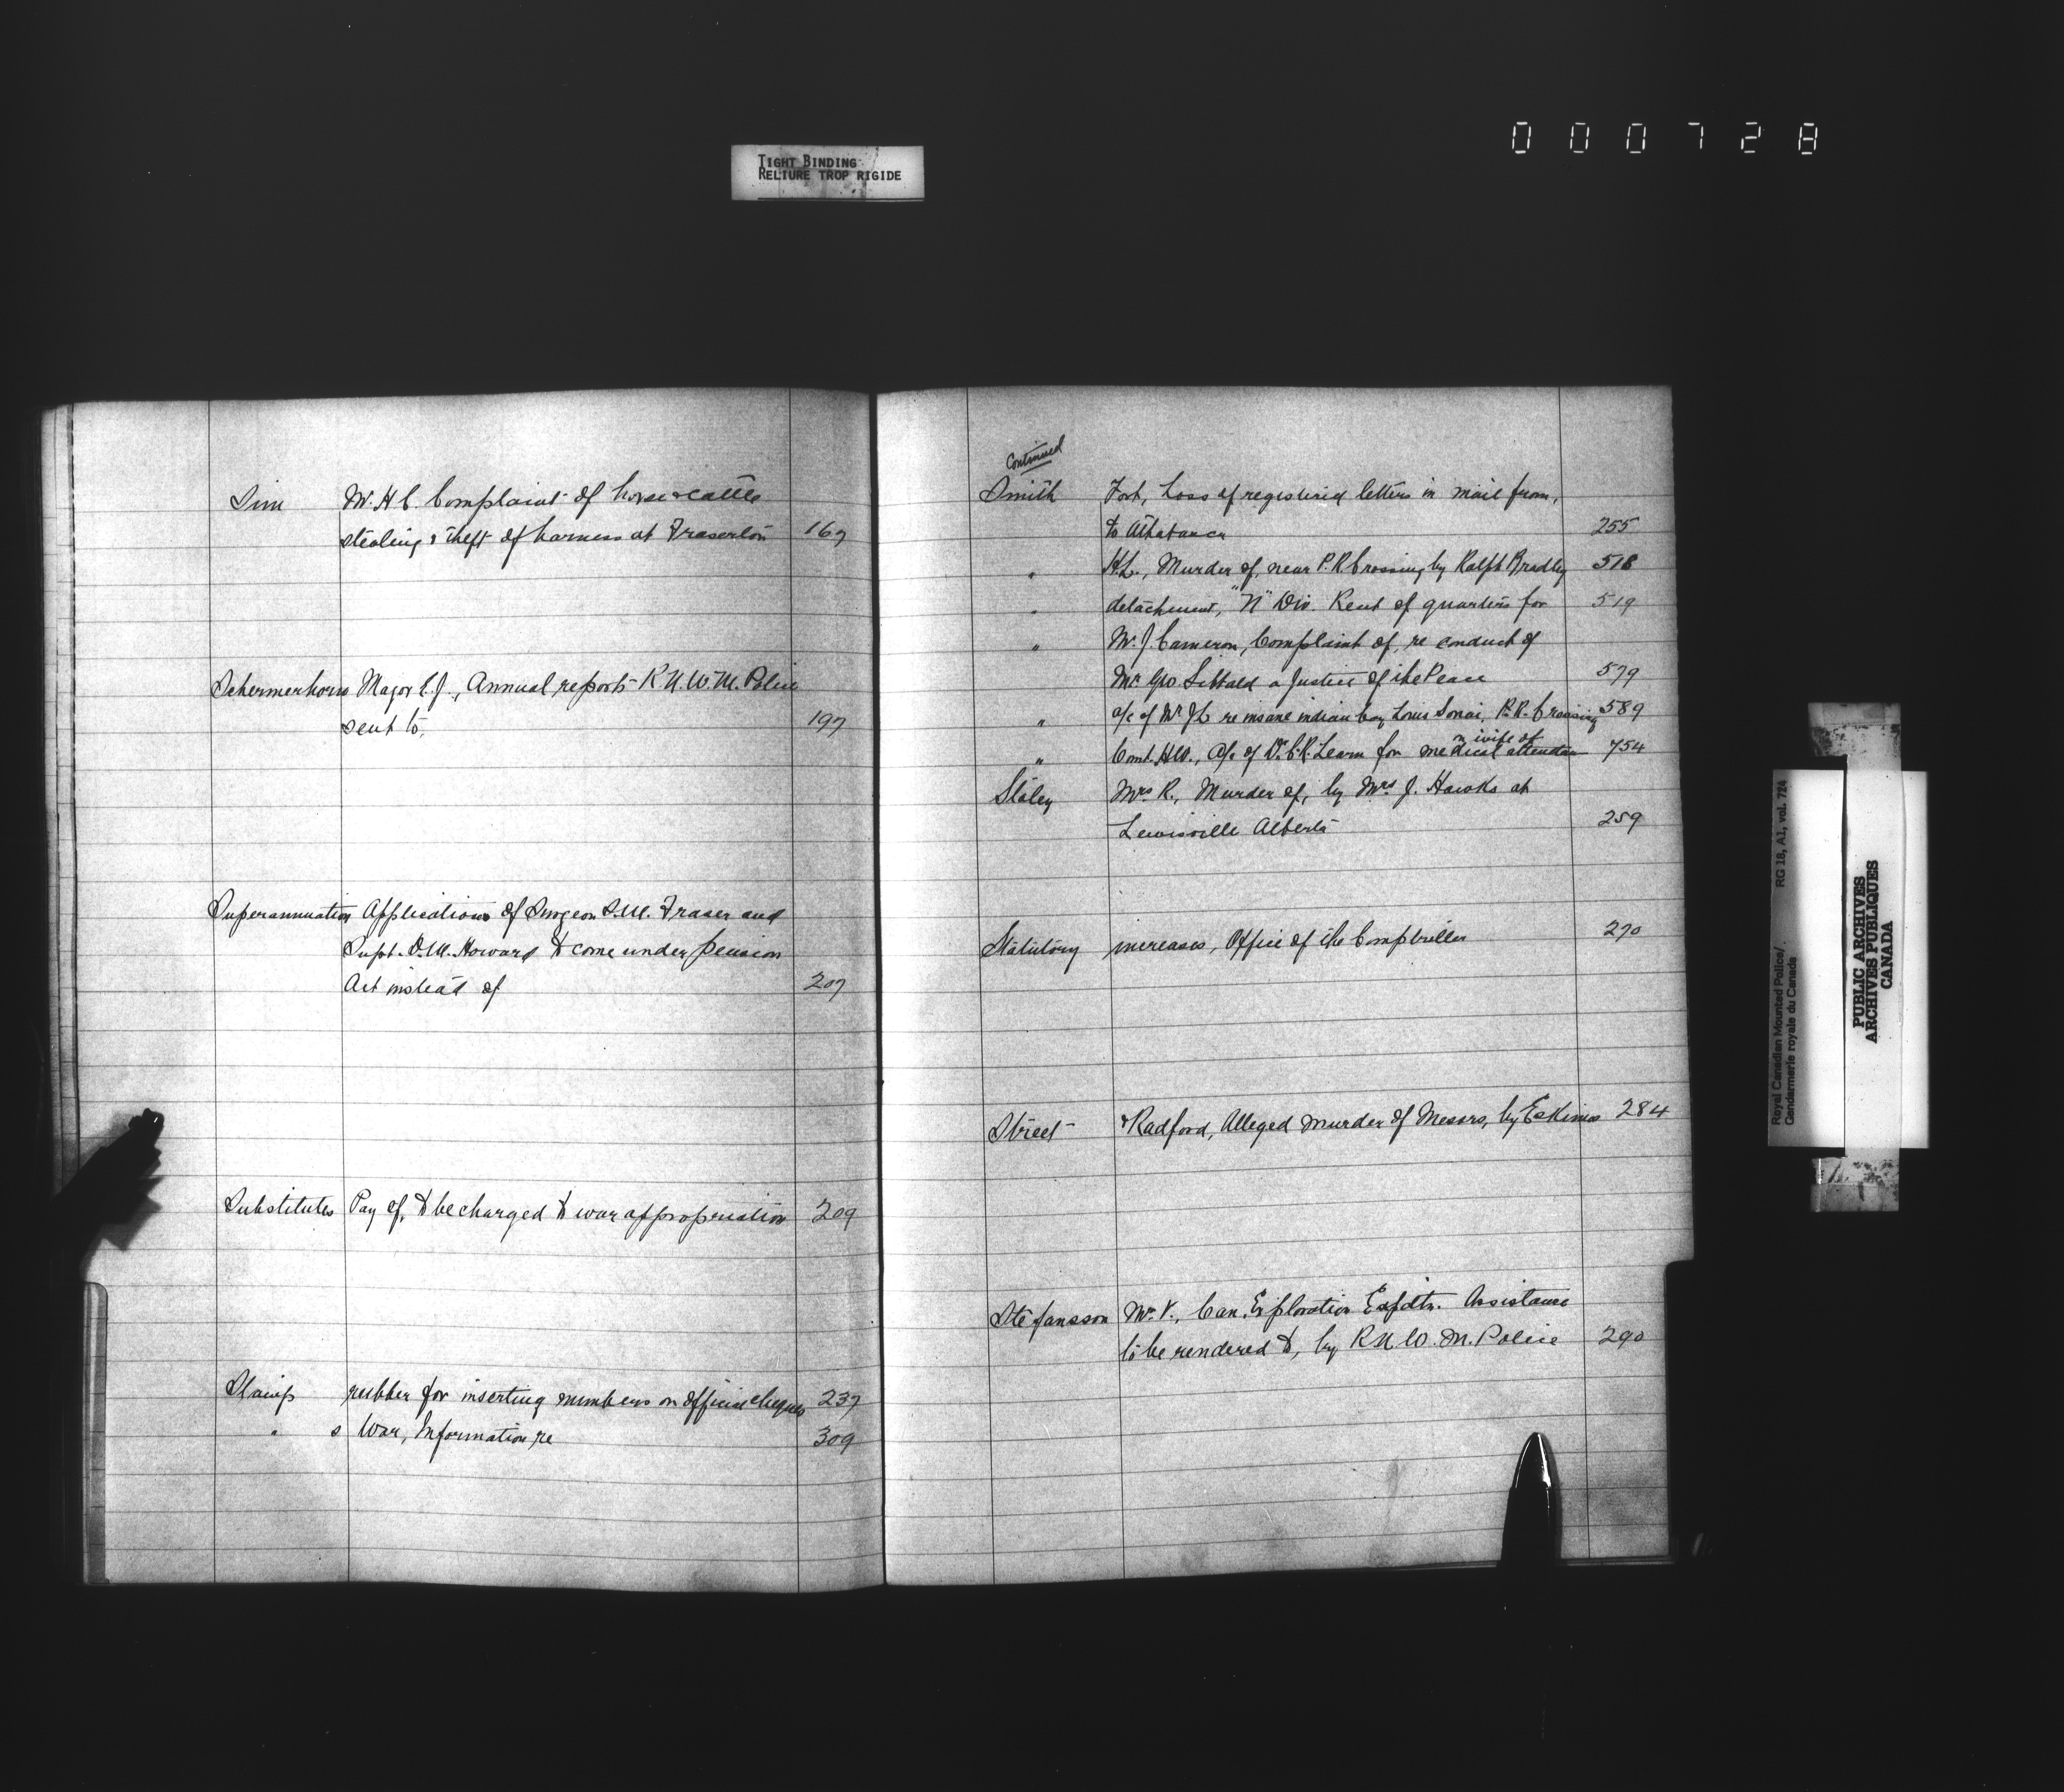 000728
TIGHT BINDING
RELIURE TROP RIGIDE
Sim W. H. C. Complaint of horse & cattle
stealing & theft of harness at Fraserton 167
Schermerhorn Major E. J., Annual reports R.N.W.M. Police
sent to, 197
Superannuation Applications of Surgeon S.M. Fraser and
Supt. D.M. Howard to come under pension
Act instead of 207
Substitutes Pay of, to be charged to war appropriation 209
Stamp rubber for inserting numbers on official cheques 237
" s War, Information re 309
Continued
Smith Fort, Loss of registered letters in mail from,
to Athabasca 255
" H.L., Murder of, near P.R. Crossing by Ralph Bradley 518
" detachment, "N" Div. Rent of quarters for 519
" W. J. Cameron, Complaint of, re conduct of
Mr Geo Sibbald a Justice of the Peace 579
" a/c of W. J L re insane indian boy Louis, P.R. Crossing 589
" Const. H.W., a/c of Dr. C.R. Learn for medical attendance
n wife of 754
Staley Mrs R., Murder of, by Mrs J. Hawks at
Lewisville Alberta 259
Statutory increases, Office of the Comptroller 270
Street & Radford, Alleged murder of Messrs, by Eskimos 284
Stefansson Mr. V., Can. Exploration Expdtn. Assistance
to be rendered to, by R.N.W.M. Police 290
Royal Canadian Mounted Police/ RG 18, A1, vol. 724
Gendarmerie royale du Canada
PUBLIC ARCHIVES
ARCHIVES PUBLIQUES
CANADA